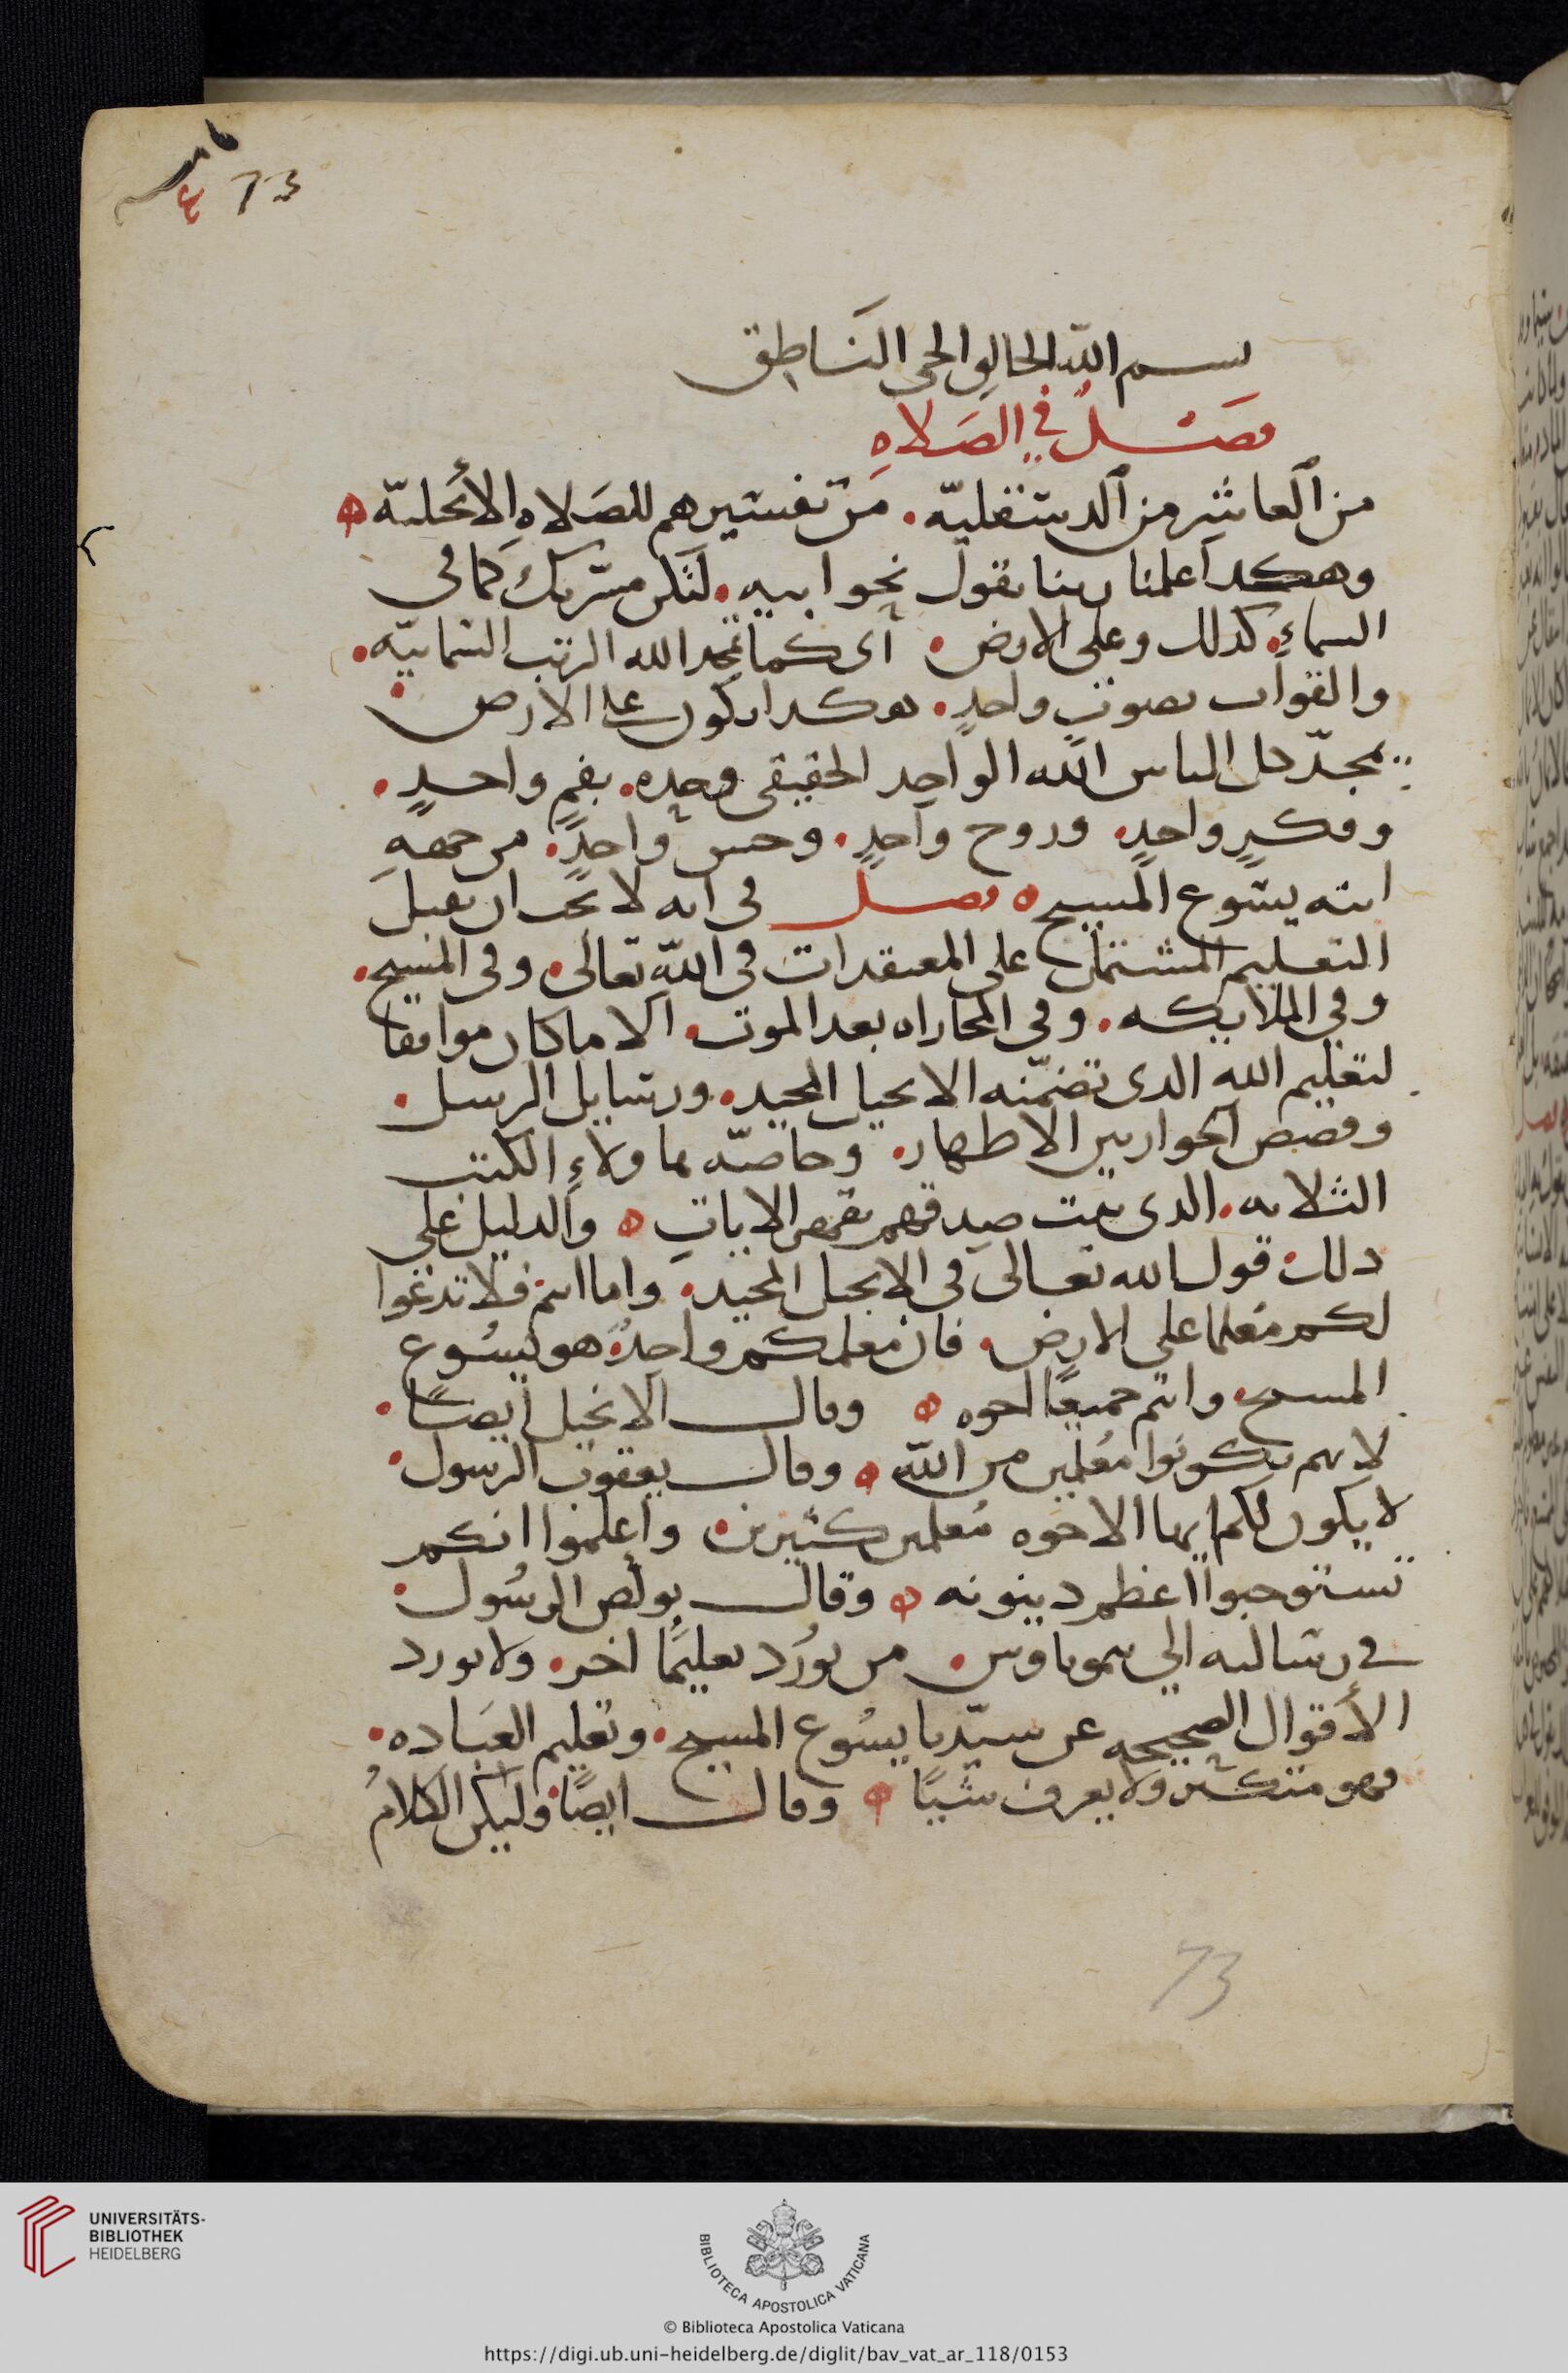 خامسه
٤ 73
بسم الله الخالق الحي الناطق
فصل في الصلاه
من العاشر من الدسقليه. من تفسيرهم للصلاه الانجليه
وهكدا علمنا ربنا نقول نحو ابيه. لتكن مسرتك كما في
السماء. كدلك وعلى الارض. اى كما تمجد الله الرتب السمائيه.
والقوات بصوت واحد. هكدا يكون على الارض.
يمجد كل الناس الله الواحد الحقيقي وحده. بفم واحد.
وفكر واحد. وروح واحد. وحس واحد. من جهه
ابنه يسوع المسيح فصل في انه لا يجب ان نقبل
التعليم المشتمل على المعتقدات في الله تعالى. وفي المسيح.
وفي الملايكه. وفي المجازاه بعد الموت. الا ما كان موافقا
لتعليم الله الدى تضمنه الانجيل المجيد. ورسايل الرسل.
وقصص الحواريين الاطهار. وخاصه بها ولاء الكتب
الثلاثه. الدى ثبت صدقهم بقهر الايات والدليل على
دلك قول الله تعالى في الانجيل المجيد. واما انتم فلا تدعوا
لكم معلما على الارض. فان معلمكم واحد هو يسوع
المسيح. وانتم جميعا اخوه وقال الانجيل ايضا.
لانهم يكونوا معلمين من الله وقال يعقوب الرسول.
لا يكون لكم ايها الاخوه معلمين كثيرين. واعلموا انكم
تستوجبوا اعظم دينونه وقال بولص الرسول.
في رسالته الي تيموتاوس. من يورد تعليما اخر. ولا يورد
الأقوال الصحيحه عن سيدنا يسوع المسيح. وتعليم العباده.
فهو متكبر ولا يعرف شيا وقال ايضا. وليكن الكلام
73
UNIVERSITÄTS-
BIBLIOTHEK
HEIDELBERG
BIBLIOTECA APOSTOLICA VATICANA
© Biblioteca Apostolica Vaticana
https://digi.ub.uni-heidelberg.de/diglit/bav_vat_ar_118/0153